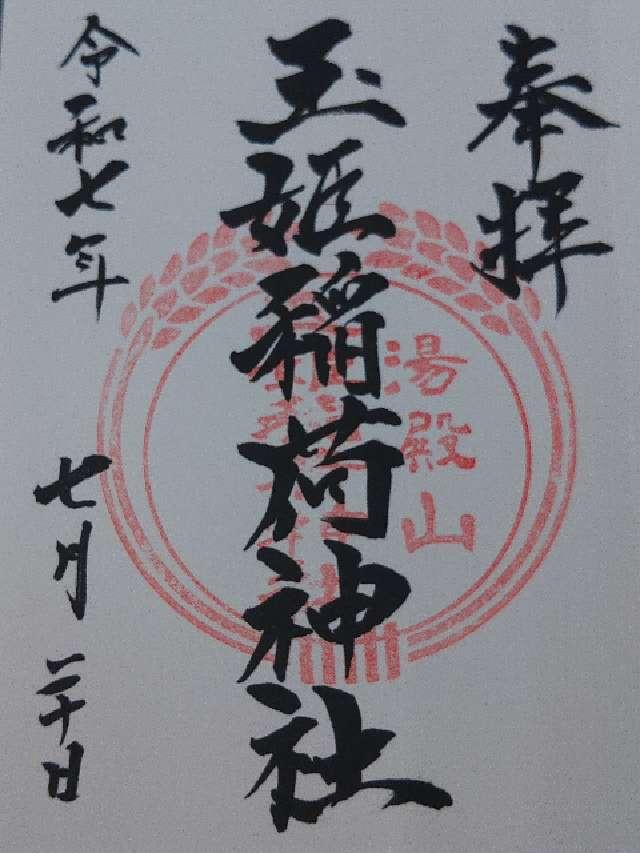 奉拝
湯殿山
玉姫稲荷神社
令和七年
七月二十日